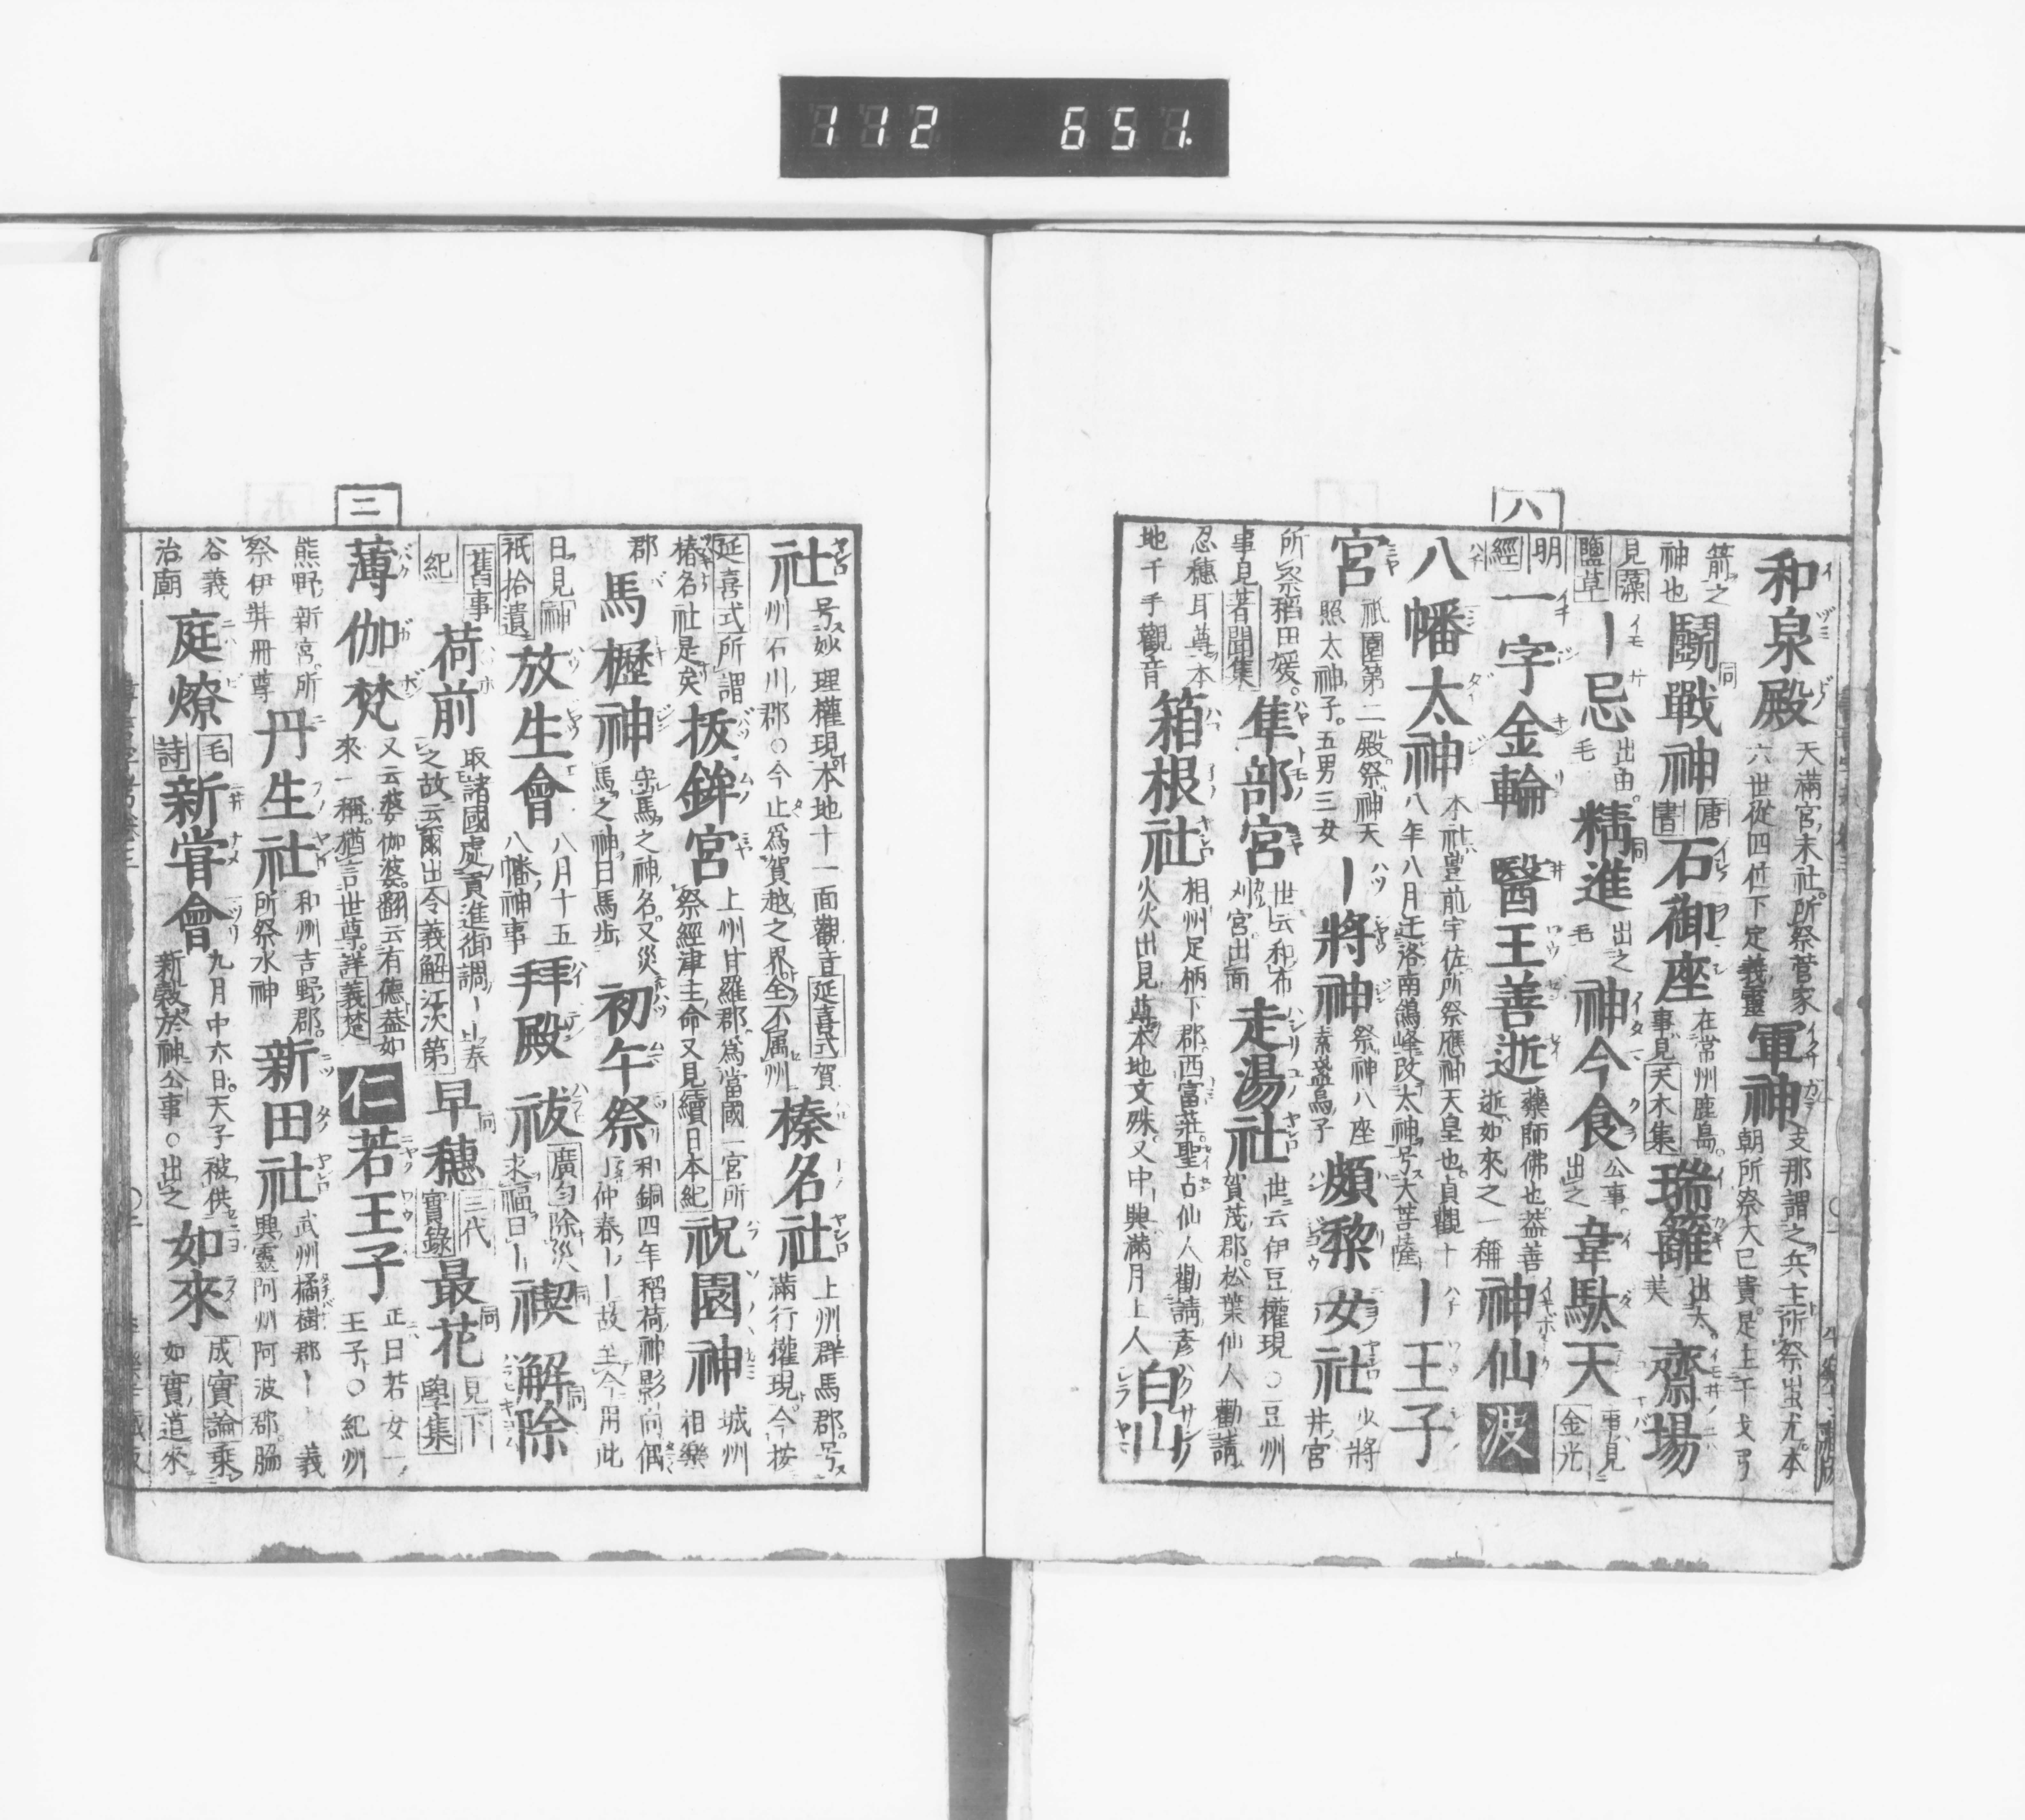 112 651.
八
和泉殿 天滿宮末社所祭菅家六世從四位下定義靈 軍神 支那謂之兵主所祭出尤本朝所祭大已貴是上干戈弓
箭之神也 鬪戰神 唐書 石御座 在常州鹿島事見夫木集 瑞籬 出 齋場
見藻鹽草 ー忌 出由毛 精進 出之毛 神今食 公事出之 韋駄天 事見金光
明經 一字金輪 醫王善逝 藥師佛也益善逝如來之一稱 神仙 波
八幡太神 本社豊前宇佐所祭應神天皇也貞觀十八年八月迁洛南鴿峰改太神号大菩薩 ー王子
宮 祇園第二殿祭神天照太神子五男三女 ー將神 祭神八座素盞烏子 頗黎女社 少將井宮
所祭稻田媛事見著聞集 隼部宮 世云和布刈宮出面 走湯社 世云伊豆權現○豆州賀茂郡松葉仙人勸請
忍穗耳尊本地千手觀音 箱根社 相州足柄下郡西富莊聖占仙人勸請彦火火出見尊本地文殊又中興滿月上人 白山
社 号妙理權現本地十一面觀音延喜式賀州石川郡○今止爲賀越之界全不属州 榛名社 上州群馬郡号滿行權現今按
延喜式所謂椿名社是矣 抜鉾宮 上州甘羅郡爲當國一宮所祭經津主命又見續日本紀 祝園神 城州相樂
郡 馬櫪神 守馬之神名又災馬之神日馬步 初午祭 和銅四年稻荷神影向偶丁仲春ーー故至今用此
日見神祇拾遺 放生會 八月十五八幡神事 拜殿 祓 廣勻除災求福日ー 禊 解除
舊事紀 荷前 取諸國處貢進御調ー上奉之故云爾出令義解江次第 早穗 三代實錄 最花 見下學集
二
薄伽梵 又云婆伽婆翻云有德益如來一稱猶言世尊詳義楚 仁 若王子 正日若女一王子○紀州
熊野新宮所祭伊弉冊尊 丹生社 和州吉野郡所祭水神 新田社 武州橘樹郡ー義興靈阿州阿波郡脇
谷義治廟 庭燎 毛詩 新甞會 九月中六日天子被供新穀於神公事○出之 如來 成實論乘如實道來